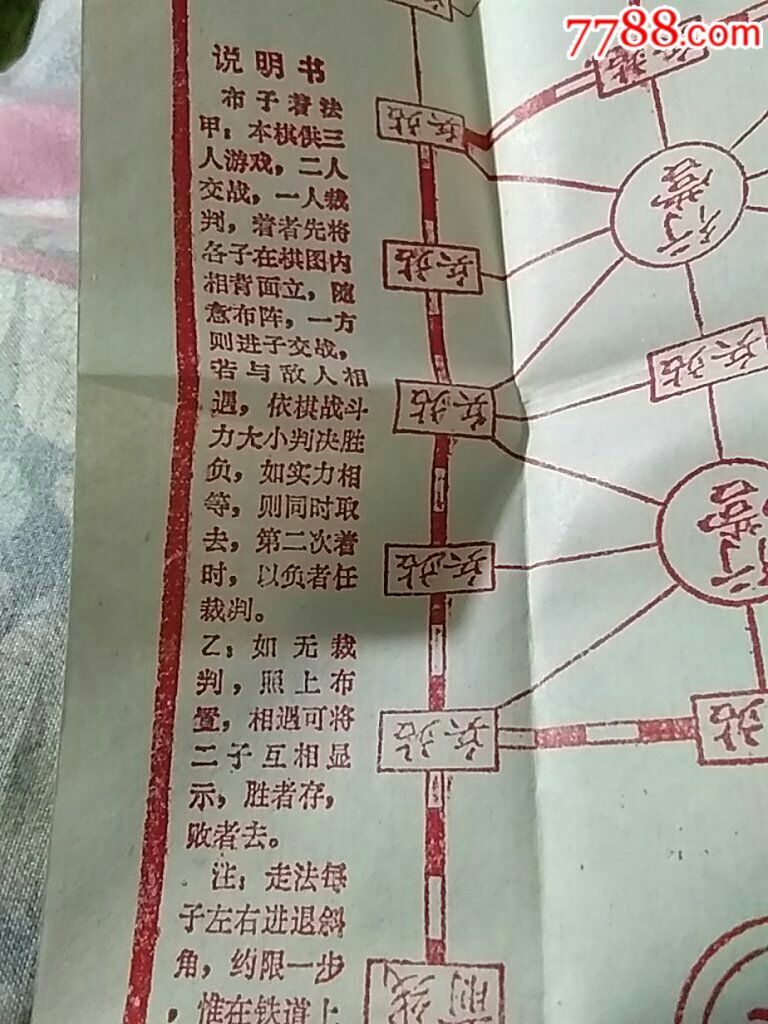 7788.com
说明书
布子着法
甲：本棋供三
人游戏，二人
交战，一人裁
判，着者先将
各子在棋图内
相背面立，随
意布阵，一方
则进子交战，
若与敌人相
遇，依棋战斗
力大小判决胜
负，如实力相
等，则同时取
去，第二次着
时，以负者任
裁判。
乙：如无裁
判，照上布
置，相遇可将
二子互相显
示，胜者存，
败者去。
注：走法每
子左右进退斜
角，约限一步
，惟在铁道上
兵站
兵站
兵站
兵站
兵站
前线
兵站
行营
兵站
行营
兵站